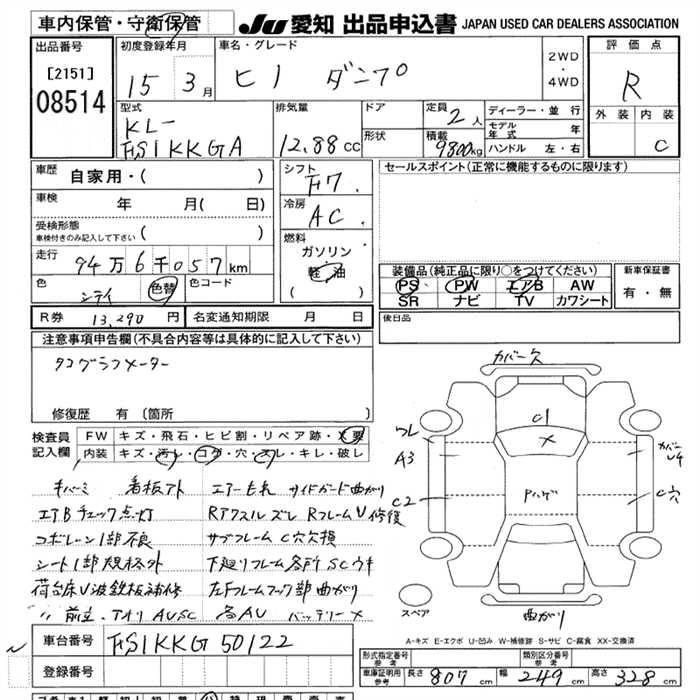 車内保管・守衛保管
JU 愛知 出品申込書 JAPAN USED CAR DEALERS ASSOCIATION
出品番号
[2151]
08514
初度登録年月
15 3月
車名・グレード
ヒノ ダンプ
2WD
・
4WD
評価点
R
外装 内装
C
型式
KL-
FS1KKGA
排気量
12.88 cc
ドア
形状
定員 2人
積載 9800kg
ディーラー・並行
モデル年式 年
ハンドル 左・右
車歴 自家用・( )
車検 年 月( 日)
受検形態
車検付きのみ記入して下さい ( )
走行 94万6千057km
色 シロイ 色替 色コード
シフト
F7.
冷房
AC.
燃料
ガソリン
軽油
( )
セールスポイント(正常に機能するものに限ります)
装備品(純正品に限り○をつけてください)
PS PW エアB AW
SR ナビ TV カワシート
新車保証書
有・無
R券 13,290円 名変通知期限 月 日
後日品
注意事項申告欄(不具合内容等は具体的に記入して下さい)
タコグラフメーター
修復歴 有(箇所
検査員記入欄
FW キズ・飛石・ヒビ割・リペア跡・X要
内装 キズ・汚レ・コゲ・穴・スレ・キレ・破レ
キバーミ 看板アト エアーモレ サイドガード曲がり
エアBチェック点灯 Rアクスルズレ RフレームU修復
コボレーン1部不良 サブフレームC穴欠損
シート1部規格外 下廻りフレーム各所SCウキ
荷台床U波鉄板補修 左Fフレームフック部曲がり
〃 前立、アオリAUSC 各AU バッテリーX
カバー欠
C1
X
ワレ
A3
C2
Pハゲ
カバー
U4
C穴
スペア
曲がり
A-キズ E-エクボ U-凹み W-補修跡 S-サビ C-腐食 XX-交換済
車台番号 FS1KKG50122
登録番号
形式指定番号
参考
類別区分番号
参考
車庫証明用
参考
長さ 807 cm 幅 249 cm 高さ 328 cm